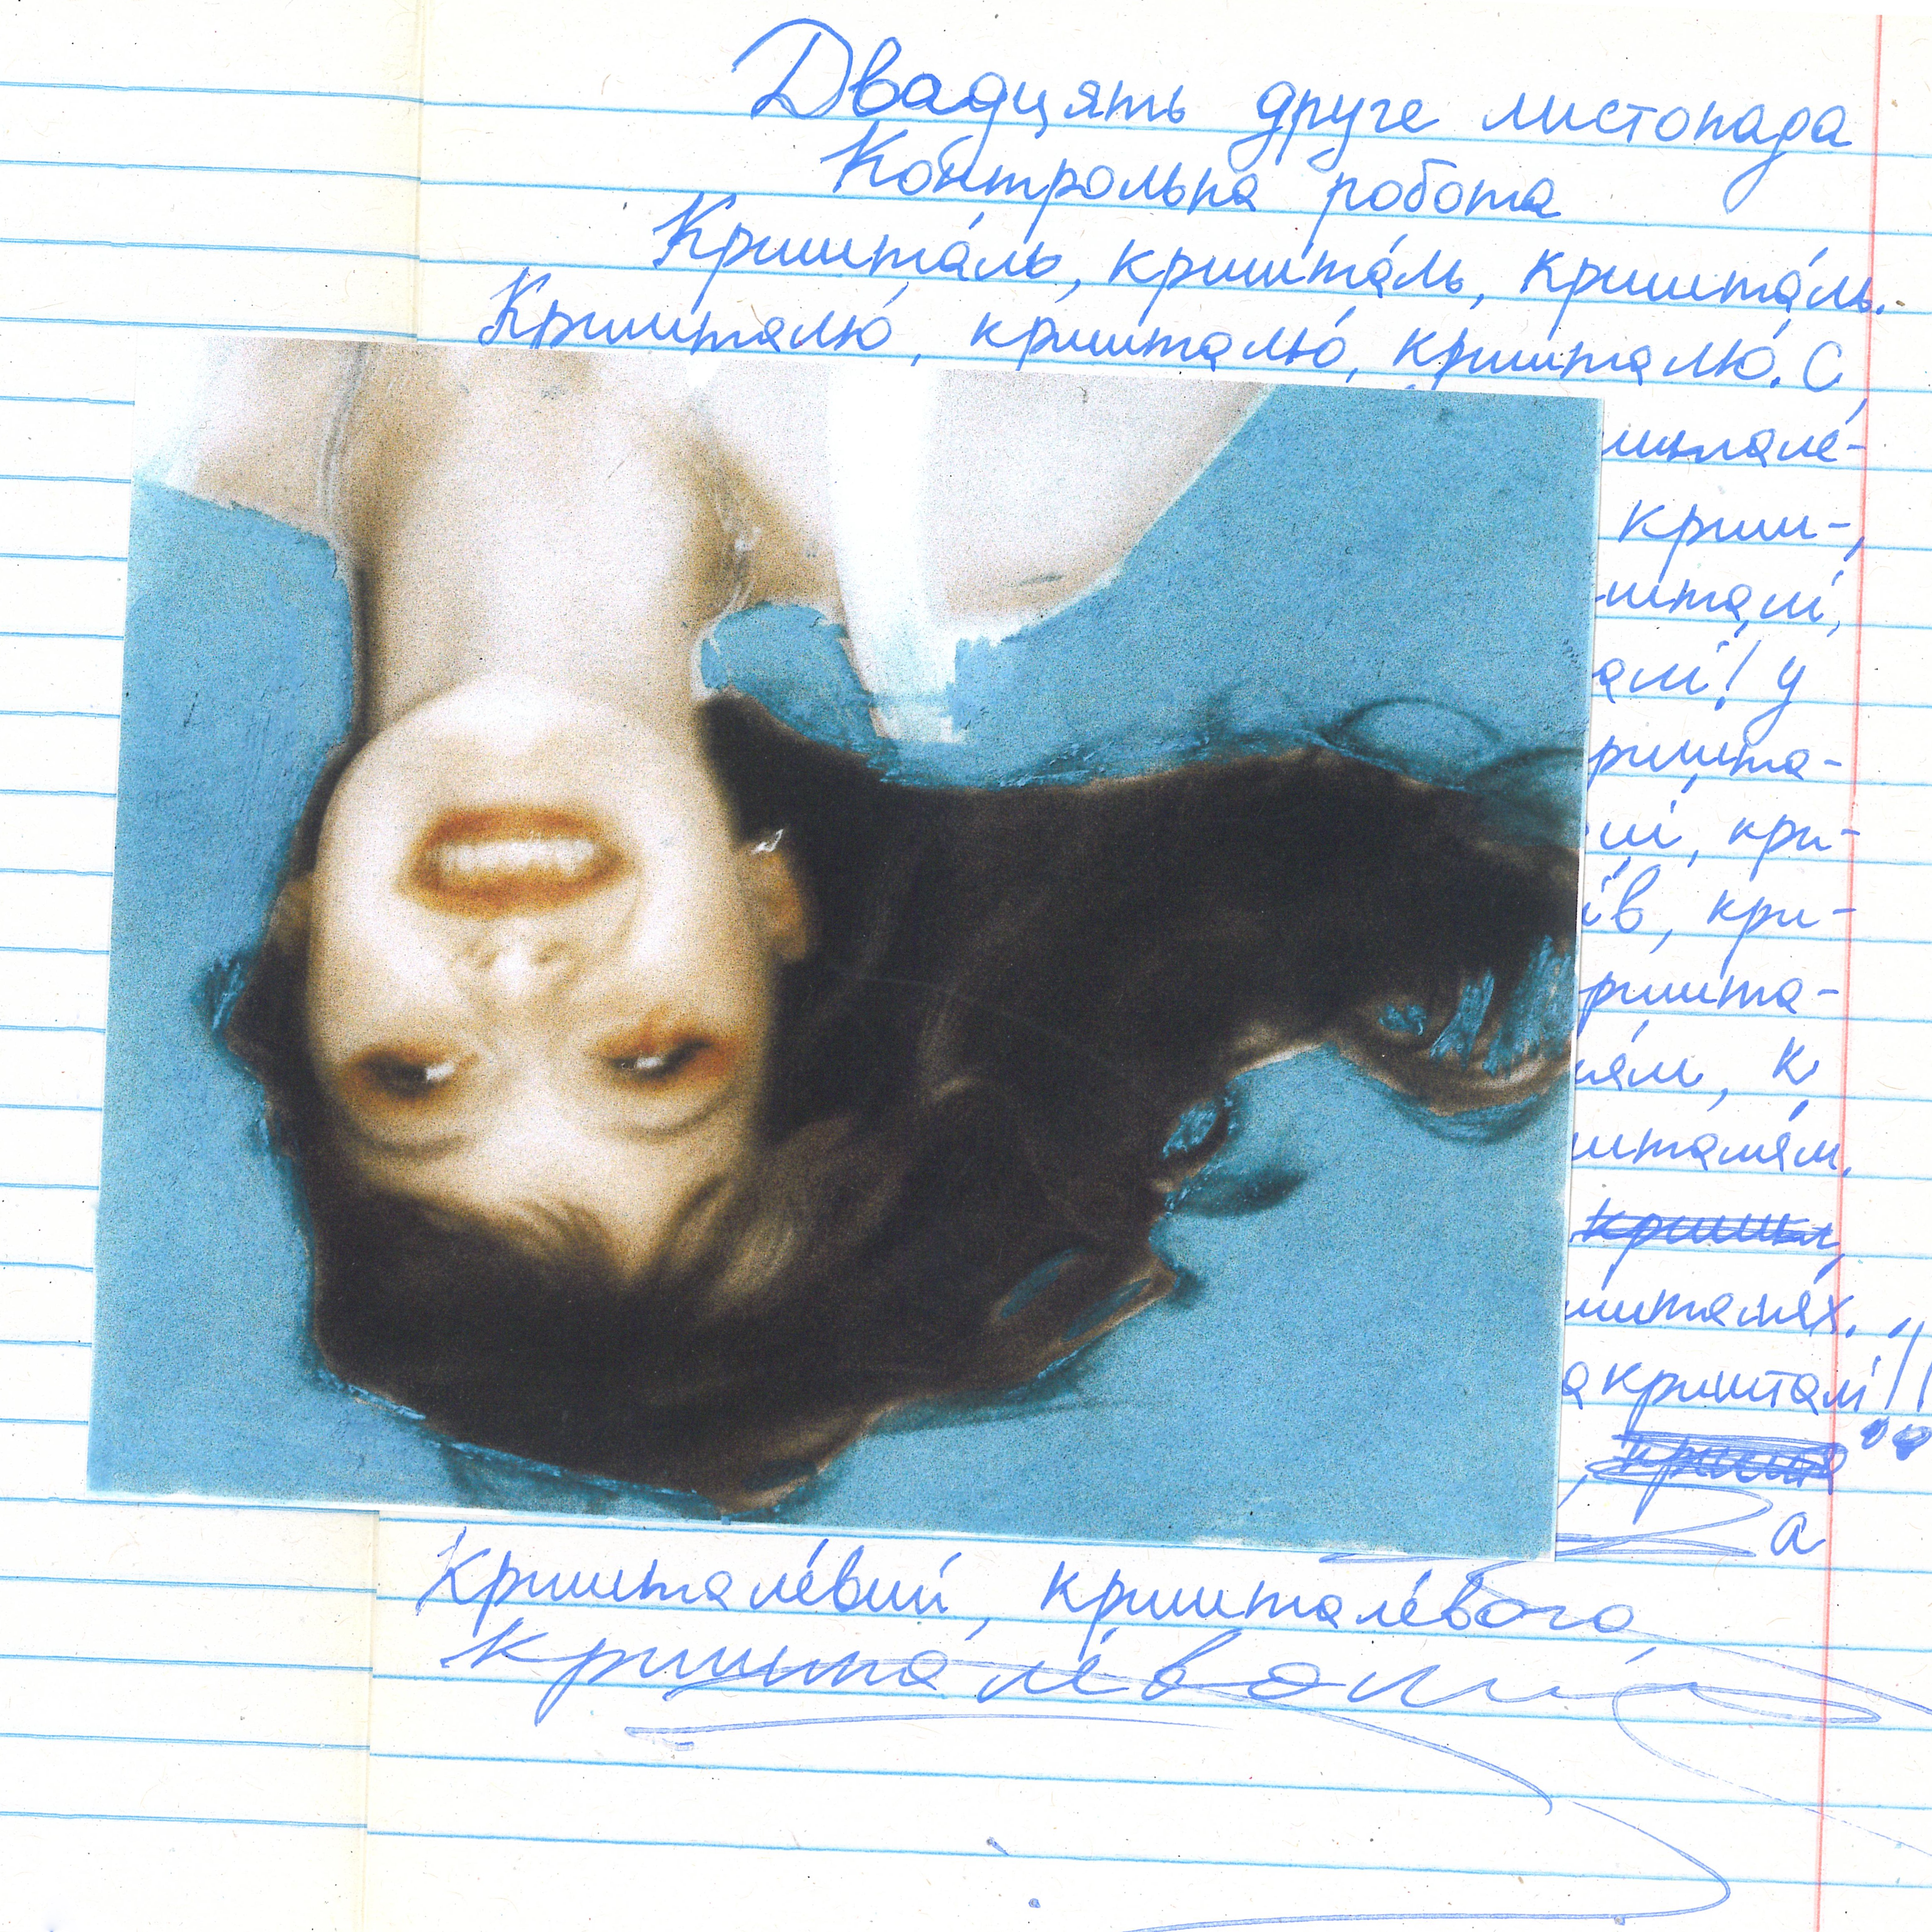 Двадцять друге листопада
Контрольна робота
Кришта́ль, кришта́ль, кришта́ль.
Кришталю́, кришталю́, кришталю́. С
шталé-
криш-
шталі,
алі! У
ришта-
лі, кри-
ів, кри-
ришта-
лям, к
шталя́м.
шталях.
а кришталі!!
а
Криштале́вий, криштале́вого,
криштале́вому